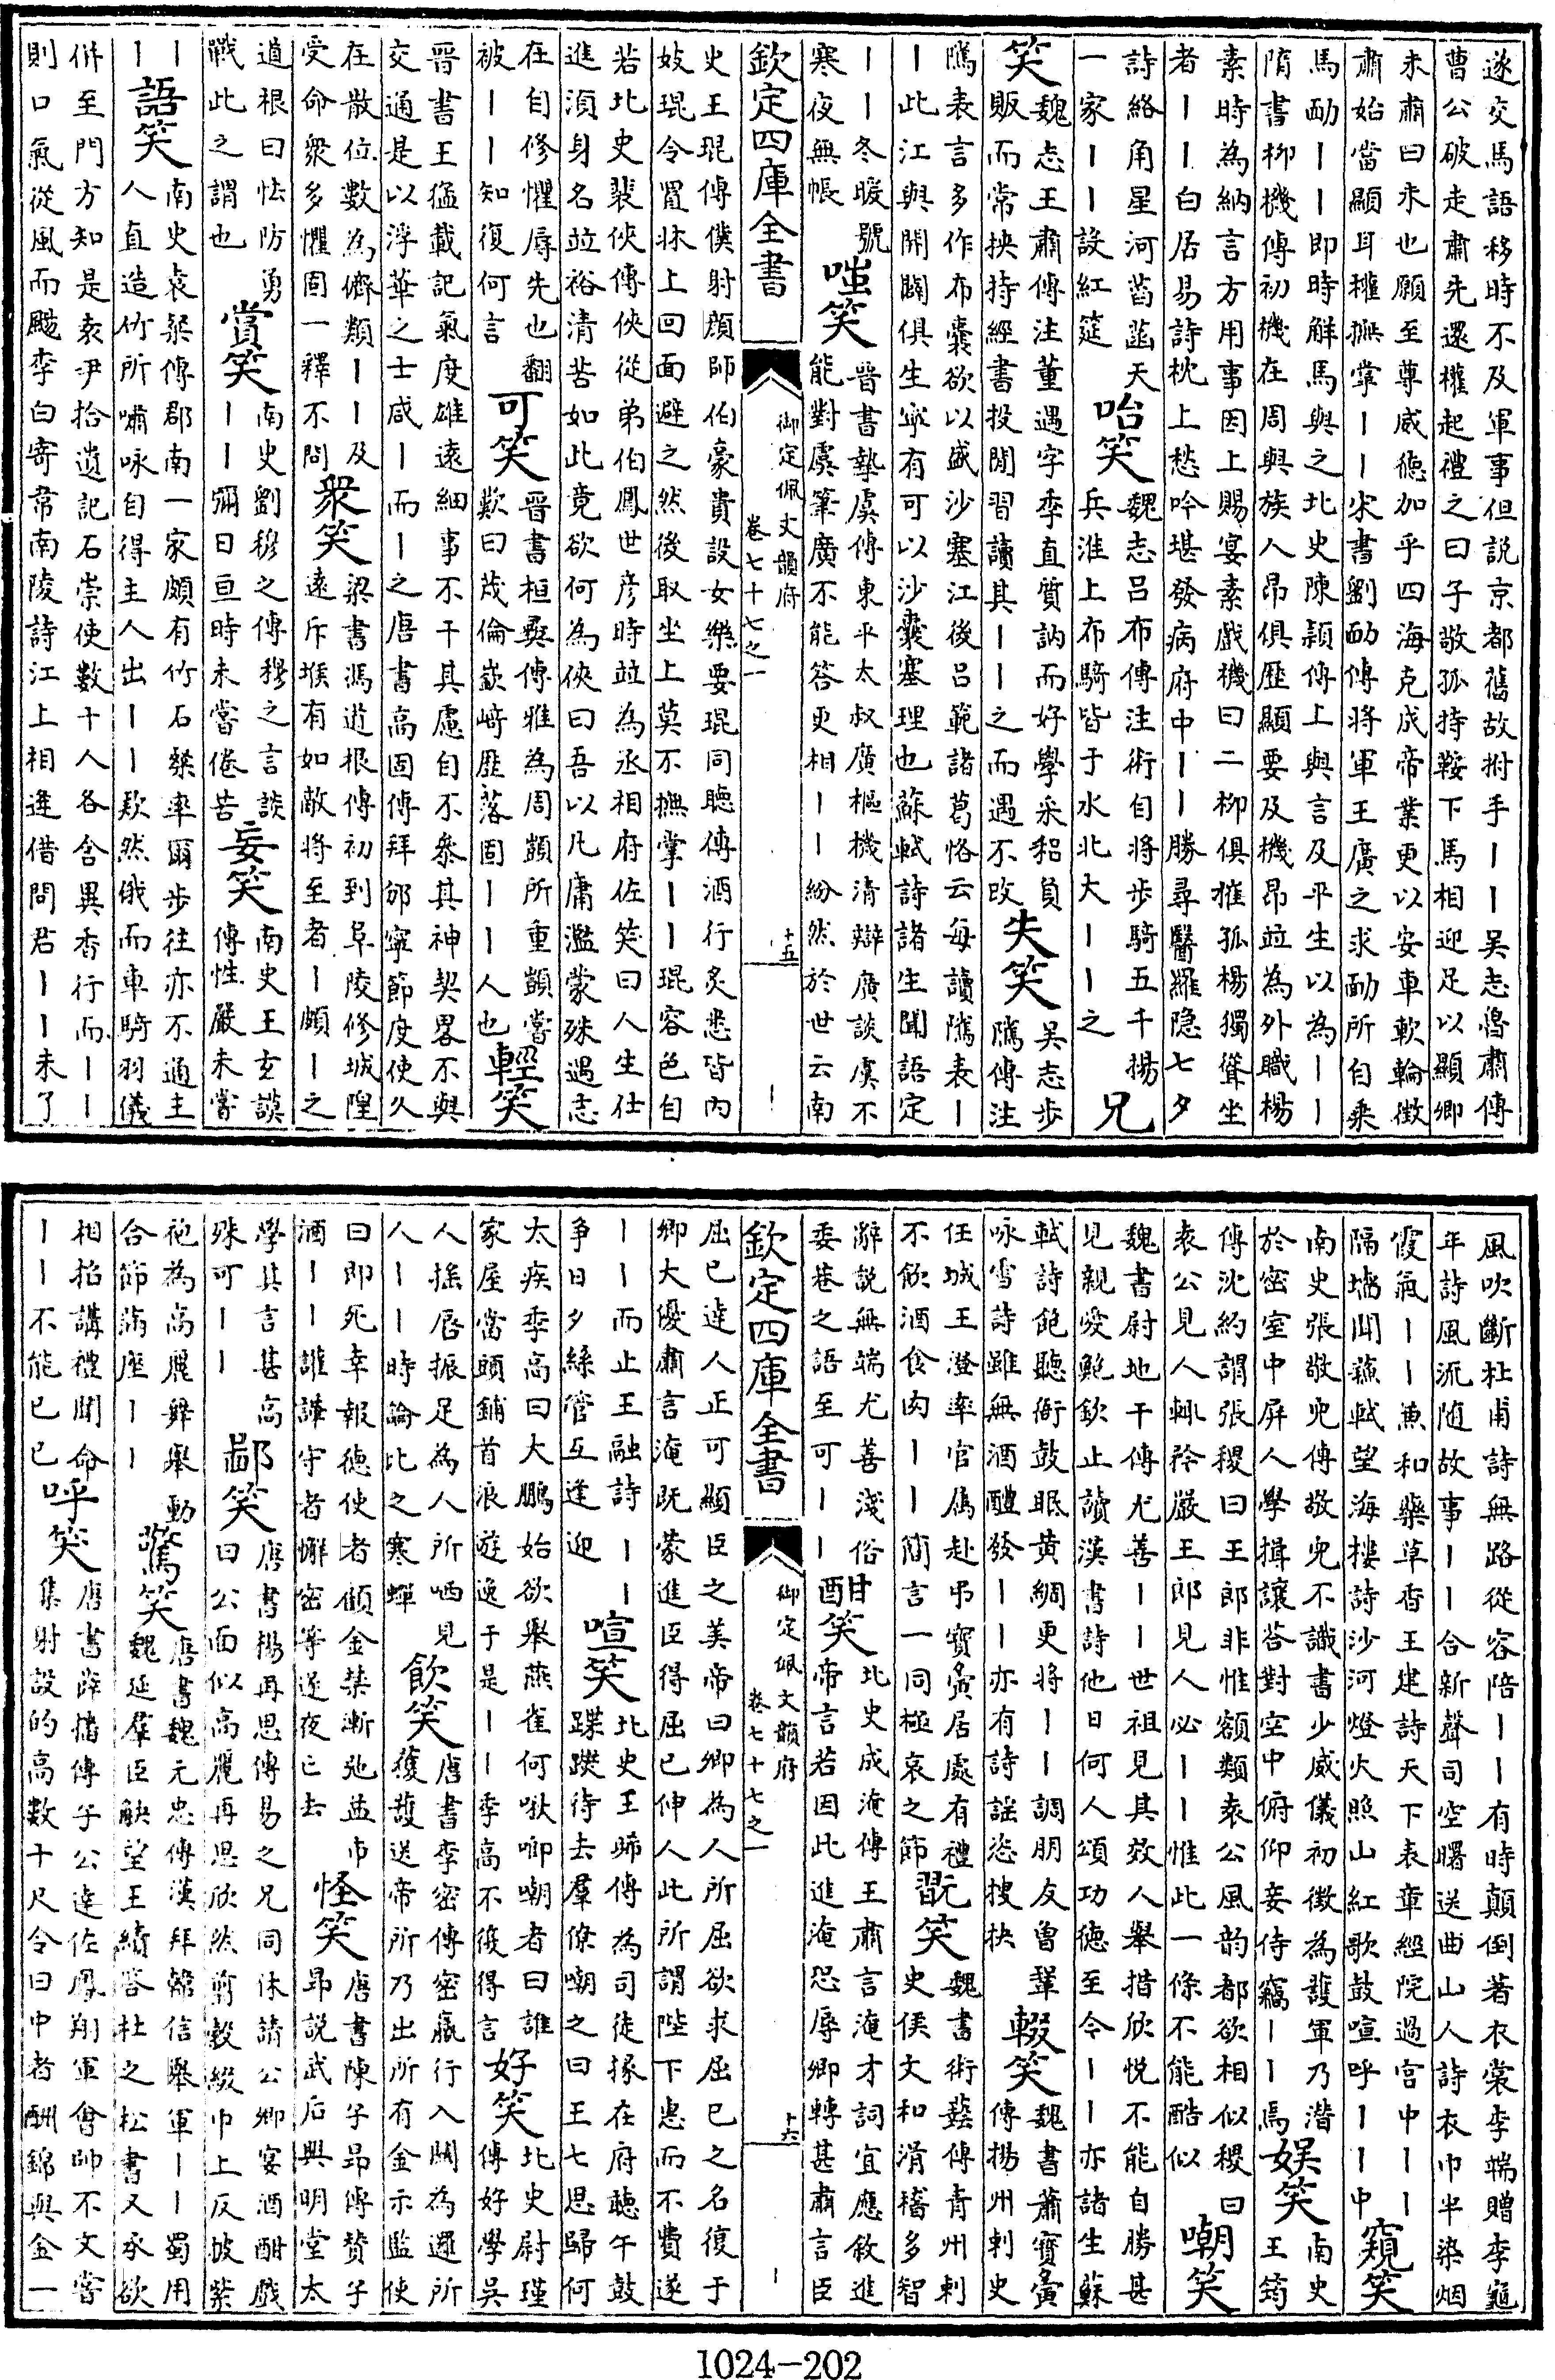 遂交馬語移時不及軍事但説京都舊故拊手丨丨吳志魯肅傳
曹公破走肅先還權起禮之曰子敬孤持鞍下馬相迎足以顯卿
未肅曰未也願至尊威徳加乎四海克成帝業更以安車軟輪徴
肅始當顯耳權撫掌丨丨宋書劉勔傳將軍王廣之求勔所自乘
馬勔丨丨即時解馬與之北史陳頴傳上與言及平生以為丨丨
隋書柳機傳初機在周與族人昂俱歴顯要及機昂竝為外職楊
素時為納言方用事因上賜宴素戲機曰二柳俱摧孤楊獨聳坐
者丨丨白居易詩枕上愁吟堪發病府中丨丨勝尋醫羅隐七夕
詩絡角星河菡萏天
一家丨丨設紅筵
咍笑
魏志吕布傳注術自將步騎五千揚
兵淮上布騎皆于水北大丨丨之
兄
笑
魏志王肅傳注董遇字季直質訥而好學采稆負
販而常挾持經書投閒習讀其丨丨之而遇不改
失笑
吳志步
隲傳注
隲表言多作布囊欲以盛沙塞江後吕範諸葛恪云每讀隲表丨
丨此江與開闢俱生寜有可以沙囊塞理也蘇軾詩諸生聞語定
丨丨冬暖號
寒夜無帳
嗤笑
晉書摯虞傳東平太叔廣樞機清辯廣談虞不
能對虞筆廣不能答更相丨丨紛然於世云南
欽定四庫全書
御定佩文韻府
卷七十七之一
十五
史王琨傳僕射顔師伯豪貴設女樂要琨同聴傳酒行炙悉皆内
妓琨令置牀上回面避之然後取坐上莫不撫掌丨丨琨容色自
若北史裴俠傳俠從弟伯鳳世彦時竝為丞相府佐笑曰人生仕
進湏身名竝裕清苦如此竟欲何為俠曰吾以凡庸濫蒙殊遇志
在自修懼辱先也翻
被丨丨知復何言
可笑
晉書桓彝傳雅為周顗所重顗嘗
歎曰茂倫嶔﨑歴落固丨丨人也
輕笑
晉書王猛載記氣度雄逺細事不干其慮自不參其神契畧不與
交通是以浮華之士咸丨而丨之唐書高固傳拜邠寧節度使久
在散位數為儕類丨丨及
受命衆多懼固一釋不問
衆笑
梁書馮道根傳初到阜陵修城隍
逺斥堠有如敵將至者丨頗丨之
道根曰怯防勇
戰此之謂也
賞笑
南史劉穆之傳穆之言談
丨丨彌日亘時未嘗倦苦
妄笑
南史王玄謨
傳性嚴未嘗
丨
丨
語笑
南史袁粲傳郡南一家頗有竹石粲率爾步往亦不通主
人直造竹所嘯咏自得主人出丨丨欵然俄而車騎羽儀
併至門方知是袁尹拾遺記石崇使數十人各含異香行而丨丨
則口氣從風而颺李白寄韋南陵詩江上相逢借問君丨丨未了
風吹斷杜甫詩無路從容陪丨丨有時顛倒著衣裳李端贈李龜
年詩風流隨故事丨丨合新聲司空曙送曲山人詩衣巾半染烟
霞氣丨丨兼和藥草香王建詩天下表章經院過宫中丨丨
隔墻聞蘇軾望海樓詩沙河燈火照山紅歌鼓喧呼丨丨中
窺笑
南史張敬兒傳敬兒不識書少威儀初徴為護軍乃潜
於密室中屏人學揖讓荅對空中俯仰妾侍竊丨丨焉
娱笑
南史
王筠
傳沈約謂張稷曰王郎非惟額類袁公風韵都欲相似稷曰
袁公見人輒矜嚴王郎見人必丨丨惟此一條不能酷似
嘲笑
魏書尉地干傳尤善丨丨世祖見其效人舉措欣悦不能自勝甚
見親愛鮑欽止讀漢書詩他日何人頌功徳至今丨丨亦諸生蘇
軾詩飽聽衙鼓眠黄綢更將丨丨調朋友曾鞏
咏雪詩雖無酒醴發丨丨亦有詩謡恣搜抉
輟笑
魏書蕭寶夤
傳揚州刺史
任城王澄率官屬赴弔寳夤居處有禮
不飲酒食肉丨丨簡言一同極哀之節
翫笑
魏書術藝傳青州刺
史侯文和滑稽多智
辭説無端尤善淺俗
委巷之語至可丨丨
酣笑
北史成淹傳王肅言淹才詞宜應叙進
帝言若因此進淹恐辱卿轉甚肅言臣
欽定四庫全書
御定佩文韻府
卷七十七之一
十六
屈已達人正可顯臣之美帝曰卿為人所屈欲求屈已之名復于
卿大優肅言淹既蒙進臣得屈已伸人此所謂陛下惠而不費遂
丨丨而止王融詩丨丨
争日夕絲管互逢迎
喧笑
北史王晞傳為司徒掾在府聴午鼓
蹀躞待去羣僚嘲之曰王七思歸何
太疾季高曰大鵬始欲舉燕雀何啾唧嘲者曰誰
家屋當頭鋪首浪遊逸于是丨丨季高不復得言
好笑
北史尉瑾
傳好學吳
人揺唇振足為人所哂見
人丨丨時論比之寒蟬
飲笑
唐書李密傳密羸行入關為邏所
獲護送帝所乃出所有金示監使
曰即死幸報徳使者顧金禁漸弛益市
酒丨丨讙譁守者懈密等遂夜亡去
怪笑
唐書陳子昂傳贊子
昂説武后興明堂太
學其言甚高
殊可丨丨
鄙笑
唐書楊再思傳易之兄同休請公卿宴酒酣戲
曰公面似高麗再思欣然翦縠綴巾上反披紫
袍為高麗舞舉動
合節滿座丨丨
驚笑
唐書魏元忠傳漢拜韓信舉軍丨丨蜀用
魏延羣臣觖望王績荅杜之松書又承欲
相招講禮聞命
丨丨不能已已
呼笑
唐書薛播傳子公逹佐鳳翔軍會帥不文嘗
集射設的髙數十尺令曰中者酬錦與金一
1024-202